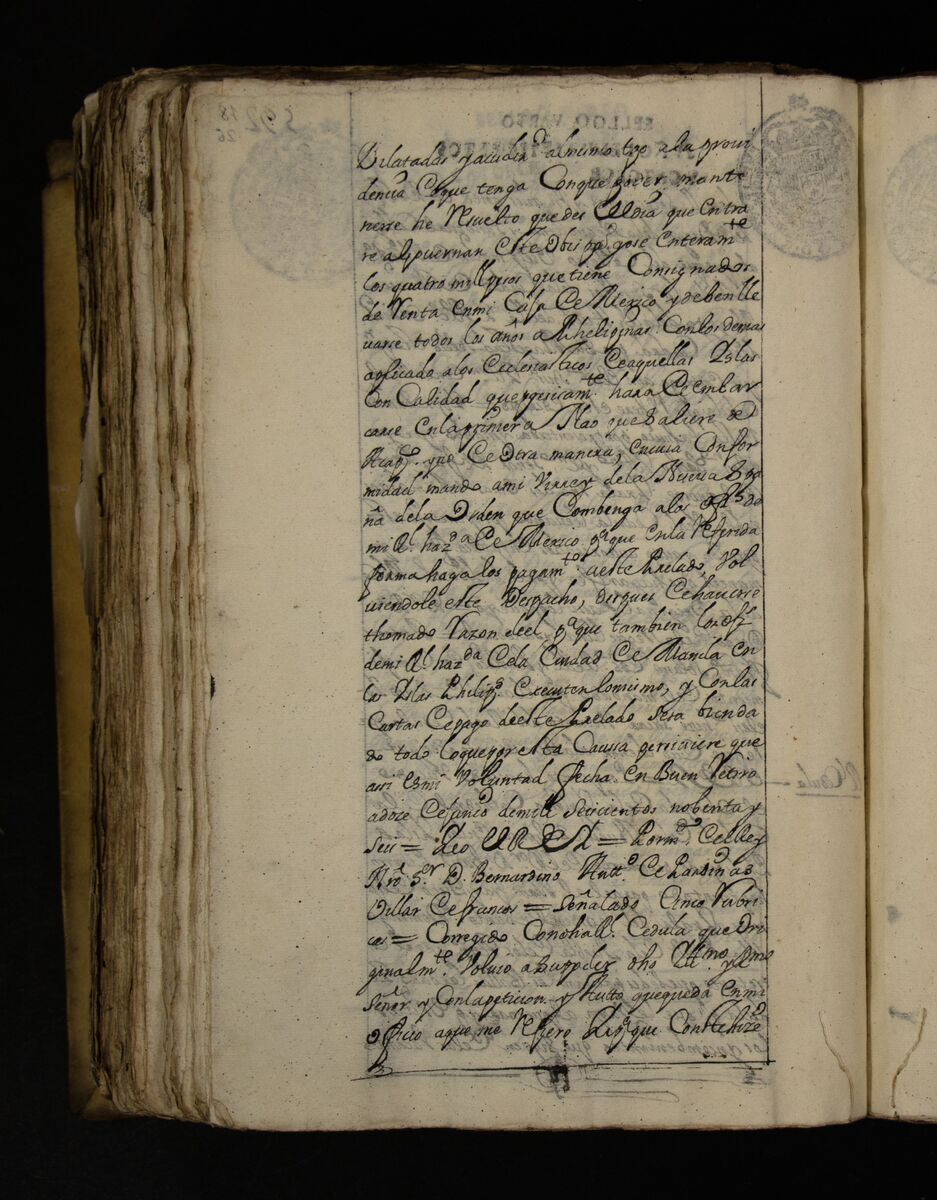 Dilatadas y acudir al mismo tpo a la provi
dencia de que tenga Conque poder mante
nerse he Resuelto que desde el dia que entra
re a Governar este Obispdo gose enteramte
los quatro mill pesos que tiene Consignados
de Renta en mi Caja de Mexico y deben lle
varse todos los años a Philipinas Con los demas
aplicado a los Eclesiasticos de aquellas Yslas
con Calidad que presisamte haya de embar
carse en la primera Nao que saliere de
Acapco y no de otra manera, en cuia Confor
midad mando a mi Virrey de la Nueva Espa
ña de la Orden que Combenga a los ofs de
mi Rl hazda de Mexico pa que en la Referida
forma haga los pagamtos a este Prelado, Vol
viendole este Despacho, despues de haverse
thomado Razon de el pa que tambien los ofs
de mi Rl hazda de la Ciudad de Manila en
las Yslas Philips executen lo mismo, y Con las
Cartas de pago de este Prelado sera bien da
do todo lo que por esta Caussa perciviere que
assi es mi Voluntad fecha en Buen Retiro
a doze de junio de mill seicientos nobenta y
seis = Yo el Rey = Por mdo del Rey
Nro Sr D. Bernardino Antto de Pardinas
Villar de francos = Señalado Cinco Rubri
cas = Corregido Con dha Rl Cedula que Ori
ginalmte Volvio a su poder dho Illmo y Rmo
señor y Con la peticion y Autto que queda en mi
officio a que me Refiero Y pa que Conste hize